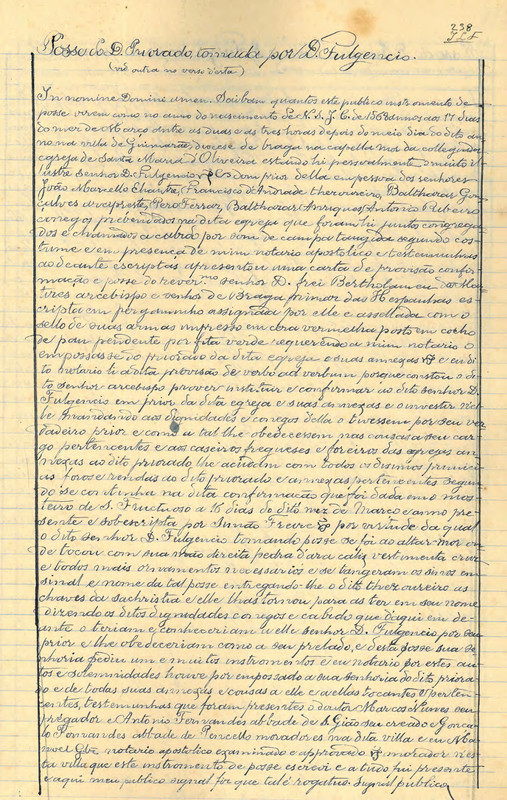 238
Posse do D. Priorado, tomada por D. Fulgencio.
(vid outra no verso d'esta)
In nomine Domini amen. Saibam quantos este publico instromento de
posse virem como no anno do nascimento de N. S. J. C. de 1568 annos aos 17 dias
do mez de Março antre as duas e as tres horas depois do meio dia do dito an-
no na villa de Guimarães, diocese de braga na capella mor da collegiada
egreja de Santa Maria d'Oliveira estando hi pessoalmente o muito il-
lustre senhor D. Fulgencio, Dom prior della em pessoa dos senhores
João Martello chantre, Francisco d'Andrade thesoureiro, Balthazar Gon-
calves arcepreste, Pero Ferraz, Balthazar Anriques, Antonio Ribeiro
conegos prebendados na dita egreja que foram hi junto congrega-
dos e chamados a cabido por som de campa tangida segundo cos-
tume e em presença de mim notario apostolico e testemunhas
ao deante escriptas apresentou uma carta de provisão confir-
mação e posse do rever.mo senhor D. frei Bertholameu dos Mar-
tires arcebispo e senhor de Braga primaz das Hespanhas es-
cripta em pergaminho assignada por elle e assellada com o
sello de suas armas impresso em cera vermelha posto em cocho
de pau pendente por fita verde requerendo a mim notario o
empossasse do priorado da dita egreja e suas annexas e eu di-
to notario li a dita provisão de verbo ad verbum porque constou o di-
to senhor arcebispo prover instituir e confirmar ao dito senhor D.
Fulgencio em prior da dita egreja e suas annexas e o investir nel-
le mandando aos dignidades e conegos della o tivessem por seu ver-
dadeiro prior e como a tal lhe obedecessem nas cousas a seu car-
go pertencentes e aos caseiros freguezes e foreiros das egrejas an-
nexas ao dito priorado lhe acudam com todos os dizimos primici-
as foros e rendas ao dito priorado e annexas pertencentes segun-
do se continha na dita confirmação que foi dada em o mos-
teiro de S. Fructuoso a 16 dias do dito mez de Março e anno pre-
sente e sobescripta por Simão Freire por virtude da qual
o dito senhor D. Fulgencio tomando posse se foi ao altar mor on-
de tocou com sua mão direita pedra d'ara calis vestimenta cruz
e todos mais ornamentos necessarios e se tangeram os sinos em
sinal e nome da tal posse entregando-lhe o dito thezoureiro as
chaves da sachristia e elle lhas tornou para as ter em seu nome
dizendo os ditos dignidades conegos e cabido que daqui em de-
ante o teriam e conheceriam a elle senhor D. Fulgencio por seu
prior e lhe obedeceriam como a seu prelado, e desta posse sua Se-
nhoria pediu um e muitos instromentos e eu notario por estes au-
tos e solemnidades houve por empossado a sua senhoria do dito priora-
do e de todas suas annexas e cousas a elle e a ellas tocantes e perten-
centes, testemunhas que foram presentes o doutor Marcos Nunes seu
pregador e Antonio Fernandes abbade de S. Gião seu creado e Gonça-
lo Fernandes abbade de Pencello moradores na dita villa e eu Ma-
noel notario apostolico examinado e approvado morador nes-
ta villa que este instromento de posse escrevi e a tudo fui presente
e aqui meu publico signal fiz que tal é rogatus. Signal publico